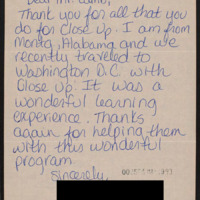 Dear Mr. Lamb,
Thank you for all that you
do for Close up. I am from
Monta, Alabama and we
recently traveled to
Washington D.C. with
Close up. It was a
wonderful learning
experience. Thanks
again for helping them
with this wonderful
program
Sincerely,